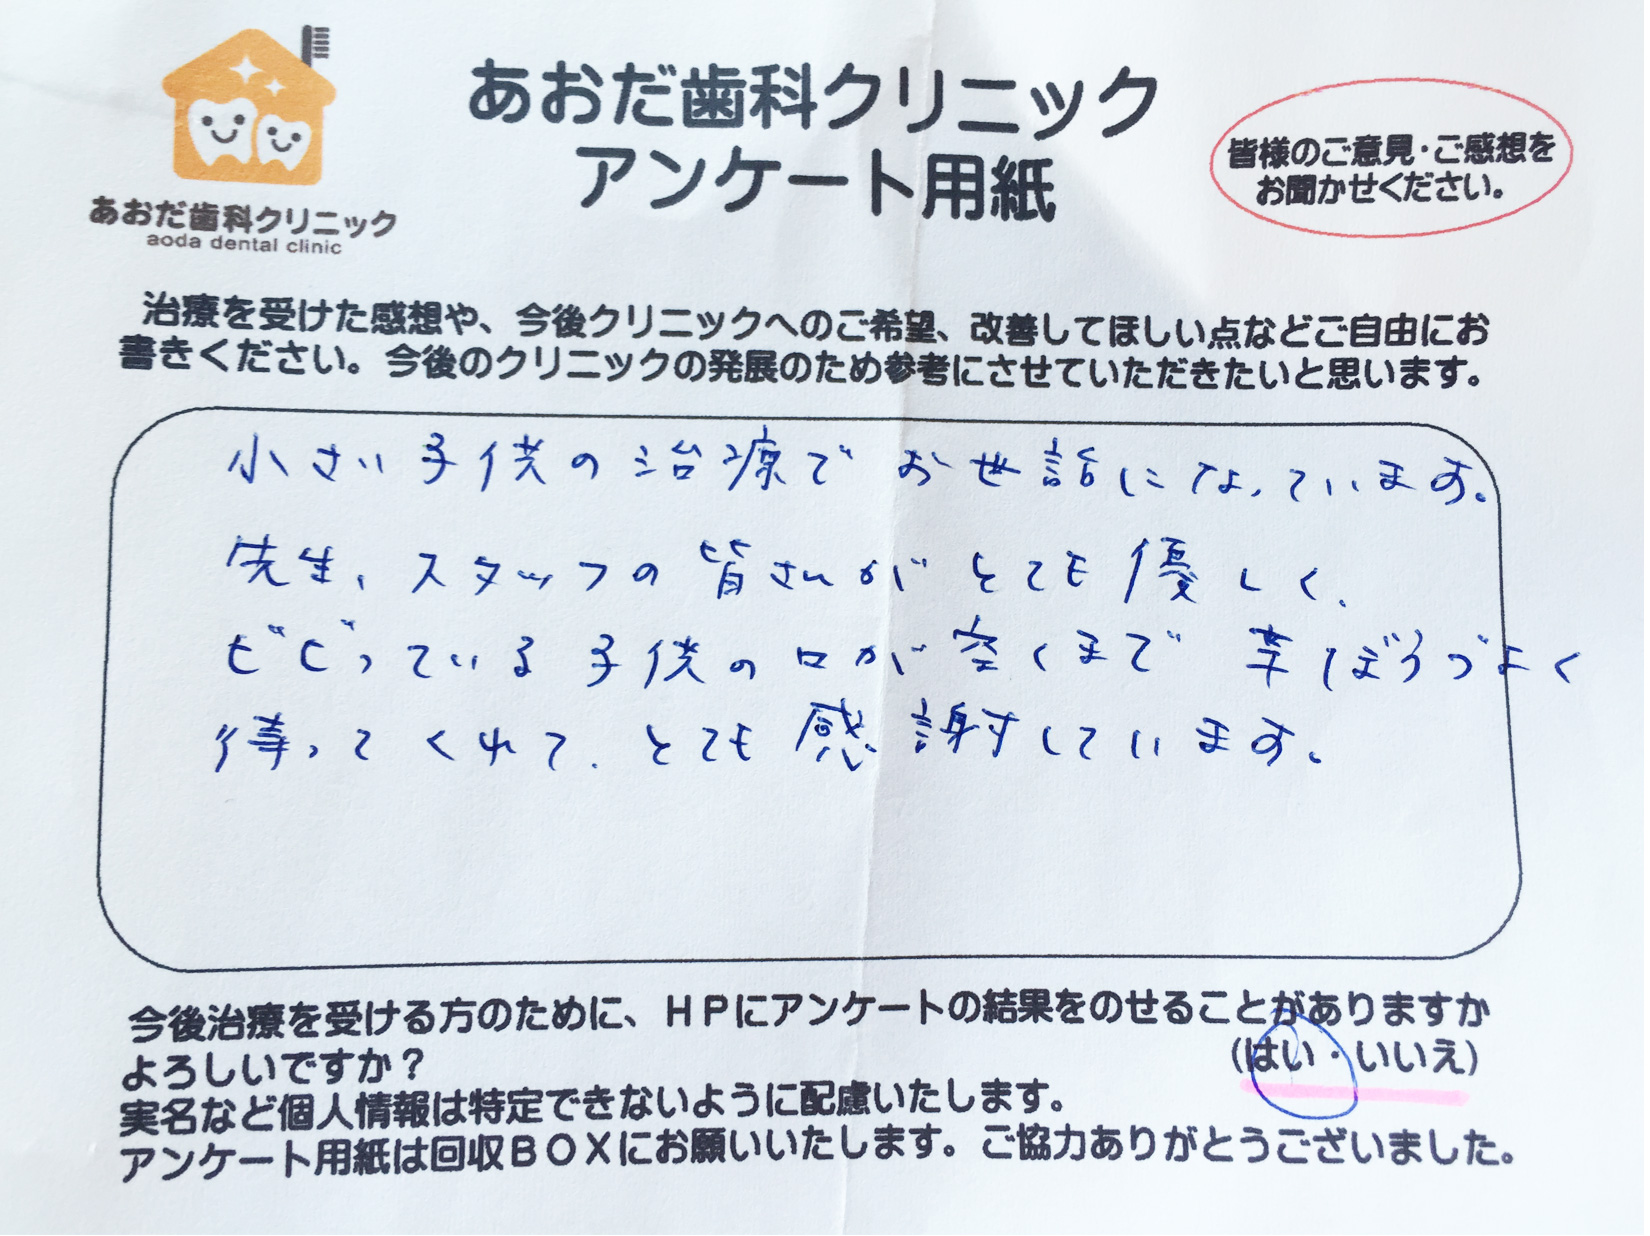 あおだ歯科クリニック
aoda dental clinic
あおだ歯科クリニック
アンケート用紙
皆様のご意見・ご感想を
お聞かせください。
治療を受けた感想や、今後クリニックへのご希望、改善してほしい点などご自由にお
書きください。今後のクリニックの発展のため参考にさせていただきたいと思います。
小さい子供の治療でお世話になっています。
先生、スタッフの皆さんがとても優しく、
ビビっている子供の口が空くまで辛ぼうづよく
待ってくれて、とても感謝しています。
今後治療を受ける方のために、HPにアンケートの結果をのせることがありますか
よろしいですか?
(はい・いいえ)
実名など個人情報は特定できないように配慮いたします。
アンケート用紙は回収BOXにお願いいたします。ご協力ありがとうございました。